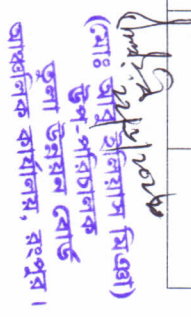 ২২/২/২০২৪
(মোঃ আবু ইলিয়াস মিঞা)
উপ-পরিচালক
তুলা উন্নয়ন বোর্ড
আঞ্চলিক কার্যালয়, রংপুর।